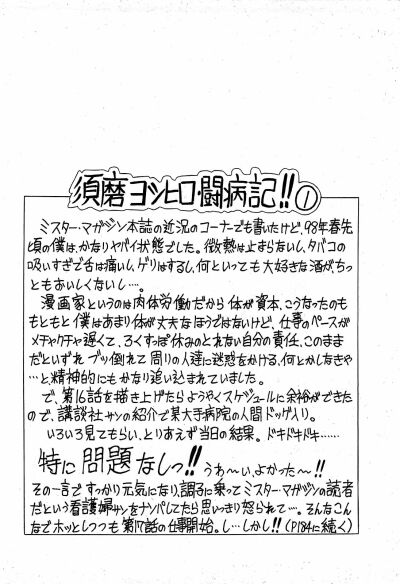 須磨ヨシヒロ・闘病記!!①
ミスター・マガジン本誌の近況のコーナーでも書いたけど、98年春先
頃の僕は、かなりヤバイ状態でした。微熱は止まらないし、タバコの
吸いすぎで舌は痛いし、ゲリはするし、何といっても大好きな酒が、ちっ
ともおいしくないし…。
漫画家というのは肉体労働だから体が資本、こうなったのも
もともと僕はあまり体が丈夫なほうではないけど、仕事のペースが
メチャクチャ遅くて、ろくすっぽ休みのとれない自分の責任、このまま
だといずれブッ倒れて周りの人達に迷惑をかける、何とかしなきゃ
…と精神的にもかなり追い込まれていました。
で、第16話を描き上げたらようやくスケジュールに余裕ができた
ので、講談社サンの紹介で某大手病院の人間ドック入り。
いろいろ見てもらい、とりあえず当日の結果。ドキドキドキ……
特に問題なしっ!!うわ〜い、よかった〜!!
その一言ですっかり元気になり、調子に乗ってミスター・マガジンの読者
だという看護婦サンをナンパしてたら思いっきり怒られて…。そんなこん
なでホッとしつつも第17話の仕事開始。し…しかし!!(P184に続く)